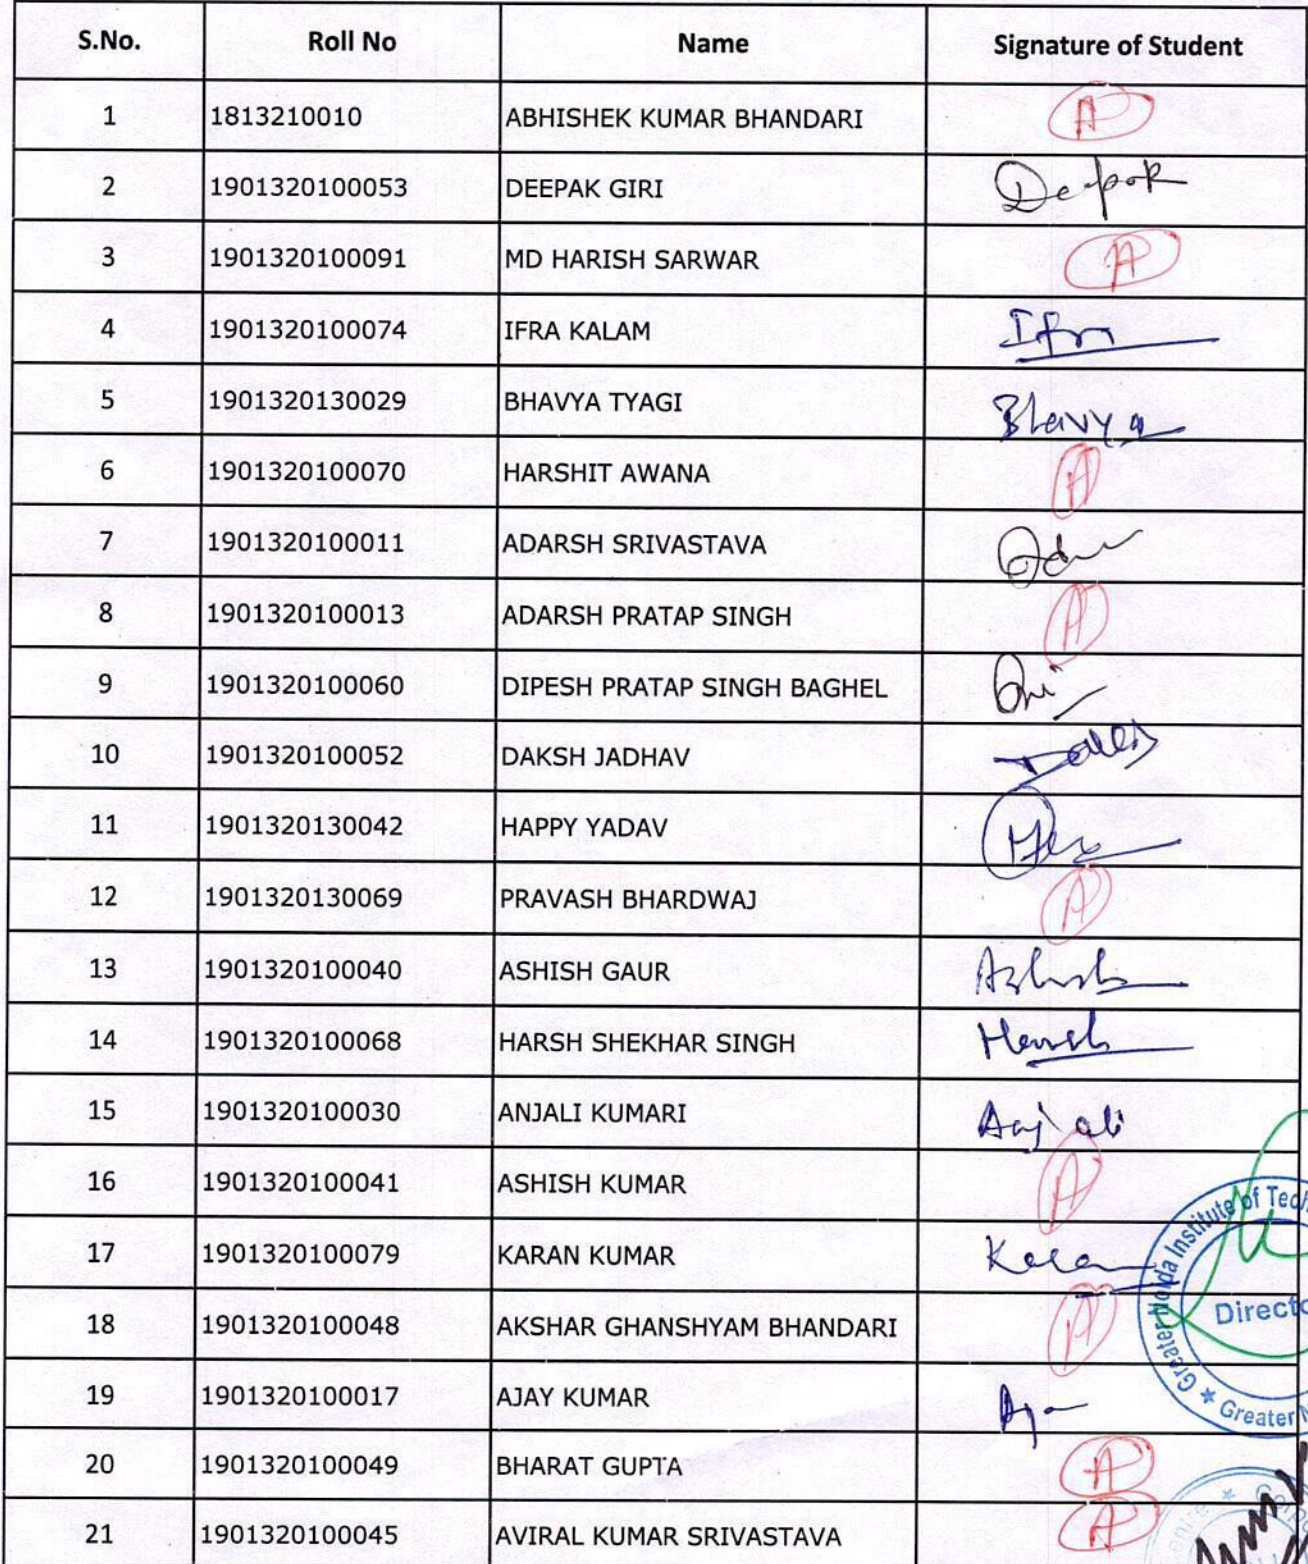 S.No. Roll No Name Signature of Student
1 1813210010 ABHISHEK KUMAR BHANDARI A
2 1901320100053 DEEPAK GIRI Deepak
3 1901320100091 MD HARISH SARWAR A
4 1901320100074 IFRA KALAM Ifra
5 1901320130029 BHAVYA TYAGI Bhavya
6 1901320100070 HARSHIT AWANA A
7 1901320100011 ADARSH SRIVASTAVA
8 1901320100013 ADARSH PRATAP SINGH A
9 1901320100060 DIPESH PRATAP SINGH BAGHEL
10 1901320100052 DAKSH JADHAV
11 1901320130042 HAPPY YADAV
12 1901320130069 PRAVASH BHARDWAJ A
13 1901320100040 ASHISH GAUR Ashish
14 1901320100068 HARSH SHEKHAR SINGH Harsh
15 1901320100030 ANJALI KUMARI Anjali
16 1901320100041 ASHISH KUMAR A
17 1901320100079 KARAN KUMAR Karan
18 1901320100048 AKSHAR GHANSHYAM BHANDARI A
19 1901320100017 AJAY KUMAR
20 1901320100049 BHARAT GUPTA A
21 1901320100045 AVIRAL KUMAR SRIVASTAVA A
Greater Noida Institute of Tech
Directo
Greater N